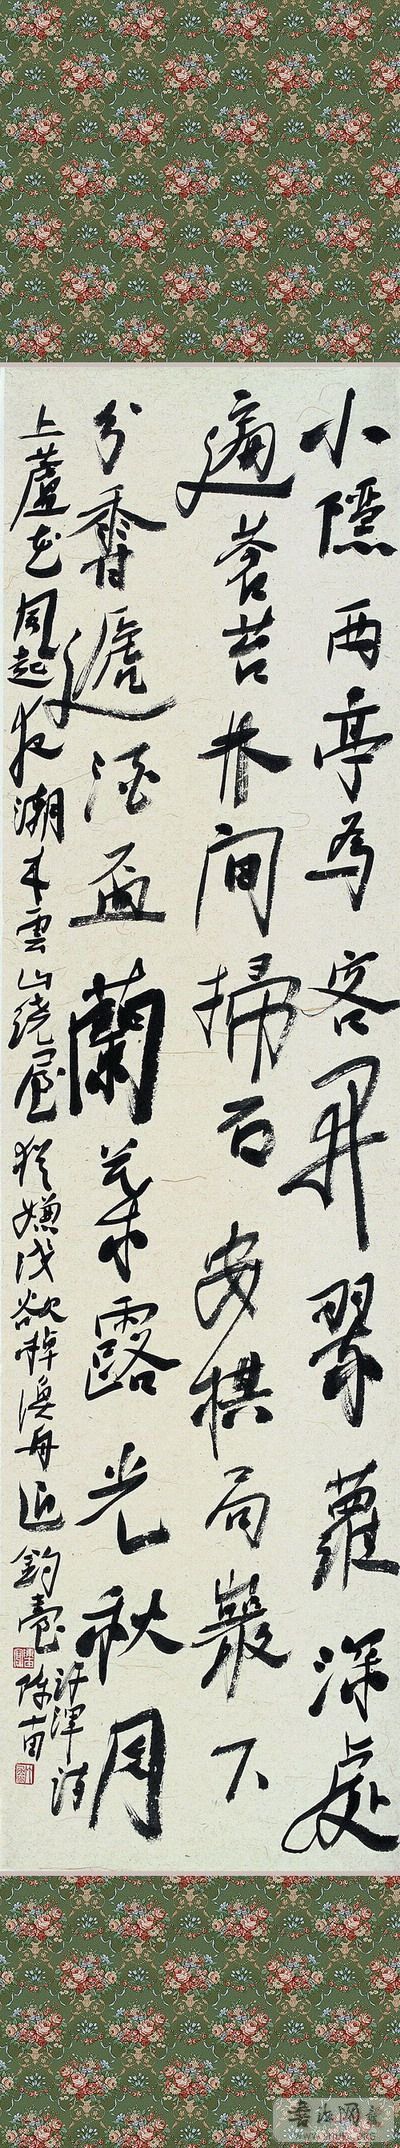 小隱西亭為客開翠蘿深處
遍蒼苔林間掃石安棋局巖下
分遞酒盃蘭葉露光秋月
上蘆花風起夜潮來雲山繞屋猶嫌淺欲棹漁舟近釣臺
許渾詩